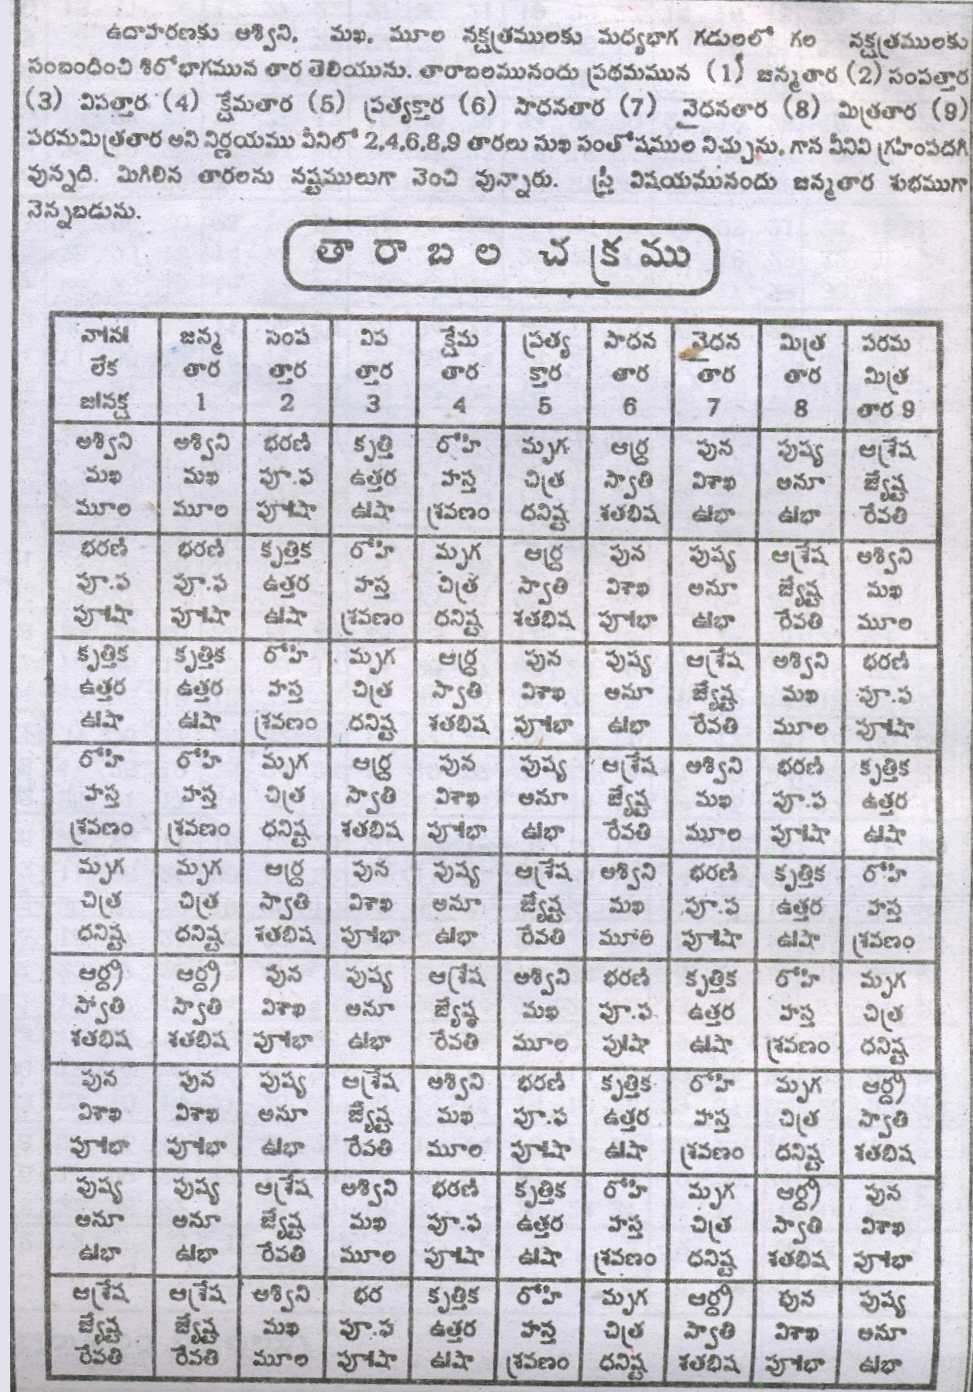 ఉదాహరణకు ఆశ్విని, మఖ, మూల నక్షత్రములకు మధ్యభాగ గడులలో గల నక్షత్రములకు
సంబంధించి శిరోభాగమున తార తెలియును. తారాబలమునందు ప్రథమమున (1) జన్మతార (2) సంపత్తార
(3) విపత్తార (4) క్షేమతార (5) ప్రత్యక్తార (6) సాధనతార (7) నైధనతార (8) మిత్రతార (9)
పరమమిత్రతార అని నిర్ణయము వీనిలో 2,4,6,8,9 తారలు సుఖ సంతోషముల నిచ్చును, గాన వీనివి గ్రహింపదగి
వున్నది. మిగిలిన తారలను నష్టములుగా నెంచి వున్నారు. స్త్రీ విషయమునందు జన్మతార శుభముగా
నెన్నబడును.
తారాబల చక్రము
నా॥న॥ జన్మ సంప విప క్షేమ ప్రత్య సాధన నైధన మిత్ర పరమ
లేక తార త్తార త్తార తార క్తార తార తార తార మిత్ర
జ॥నక్ష 1 2 3 4 5 6 7 8 తార 9
అశ్విని అశ్విని భరణి కృత్తి రోహి మృగ ఆర్ద్ర పున పుష్య ఆశ్రేష
మఖ మఖ పూ.ఫ ఉత్తర హస్త చిత్ర స్వాతి విశాఖ అనూ జ్యేష్ట
మూల మూల పూ॥షా ఉ॥షా శ్రవణం ధనిష్ట శతభిష ఉ॥భా ఉ॥భా రేవతి
భరణి భరణి కృత్తిక రోహి మృగ ఆర్ద్ర పున పుష్య ఆశ్రేష అశ్విని
పూ.ఫ పూ.ఫ ఉత్తర హస్త చిత్ర స్వాతి విశాఖ అనూ జ్యేష్ట మఖ
పూ॥షా పూ॥షా ఉ॥షా శ్రవణం ధనిష్ట శతభిష పూ॥భా ఉ॥భా రేవతి మూల
కృత్తిక కృత్తిక రోహి మృగ ఆర్ద్ర పున పుష్య ఆశ్రేష అశ్విని భరణి
ఉత్తర ఉత్తర హస్త చిత్ర స్వాతి విశాఖ అనూ జ్యేష్ట మఖ పూ.ఫ
ఉ॥షా ఉ॥షా శ్రవణం ధనిష్ట శతభిష పూ॥భా ఉ॥భా రేవతి మూల పూ॥షా
రోహి రోహి మృగ ఆర్ద్ర పున పుష్య ఆశ్రేష అశ్విని భరణి కృత్తిక
హస్త హస్త చిత్ర స్వాతి విశాఖ అనూ జ్యేష్ట మఖ పూ.ఫ ఉత్తర
శ్రవణం శ్రవణం ధనిష్ట శతభిష పూ॥భా ఉ॥భా రేవతి మూల పూ॥షా ఉ॥షా
మృగ మృగ ఆర్ద్ర పున పుష్య ఆశ్రేష అశ్విని భరణి కృత్తిక రోహి
చిత్ర చిత్ర స్వాతి విశాఖ అనూ జ్యేష్ట మఖ పూ.ఫ ఉత్తర హస్త
ధనిష్ట ధనిష్ట శతభిష పూ॥భా ఉ॥భా రేవతి మూల పూ॥షా ఉ॥షా శ్రవణం
ఆర్ద్ర ఆర్ద్ర పున పుష్య ఆశ్రేష అశ్విని భరణి కృత్తిక రోహి మృగ
స్వాతి స్వాతి విశాఖ అనూ జ్యేష్ఠ మఖ పూ.ఫ ఉత్తర హస్త చిత్ర
శతభిష శతభిష పూ॥భా ఉ॥భా రేవతి మూల పు॥షా ఉ॥షా శ్రవణం ధనిష్ట
పున పున పుష్య ఆశ్రేష అశ్విని భరణి కృత్తిక రోహి మృగ ఆర్ద్ర
విశాఖ విశాఖ అనూ జ్యేష్ట మఖ పూ.ఫ ఉత్తర హస్త చిత్ర స్వాతి
పూ॥భా పూ॥భా ఉ॥భా రేవతి మూల పూ॥షా ఉ॥షా శ్రవణం ధనిష్ట శతభిష
పుష్య పుష్య ఆశ్రేష అశ్విని భరణి కృత్తిక రోహి మృగ ఆర్ద్ర పున
అనూ అనూ జ్యేష్ట మఖ పూ.ఫ ఉత్తర హస్త చిత్ర స్వాతి విశాఖ
ఉ॥భా ఉ॥భా రేవతి మూల పూ॥షా ఉ॥షా శ్రవణం ధనిష్ట శతభిష పూ॥భా
ఆశ్రేష ఆశ్రేష అశ్విని భర కృత్తిక రోహి మృగ ఆర్ద్ర పున పుష్య
జ్యేష్ట జ్యేష్ట మఖ పూ.ఫ ఉత్తర హస్త చిత్ర స్వాతి విశాఖ అనూ
రేవతి రేవతి మూల పూ॥షా ఉ॥షా శ్రవణం ధనిష్ట శతభిష పూ॥భా ఉ॥భా